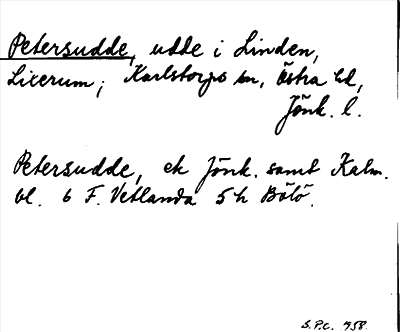 Petersudde, udde i Linden,
Licerum; Karlstorps sn, Östra hd,
Jönk. l.
Petersudde, ek Jönk. samt Kalm.
bl. 6 F. Vetlanda 5 h Bölö.
S.P.C. 458